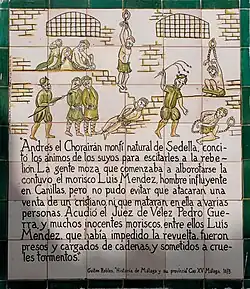 Andrés el Chorairán monfí natural de Sedella, conci-
tó los ánimos de los suyos para escitarles a la rebe-
lión. La gente moza que comenzaba a alborotarse la
contuvo el morisco Luis Mendez, hombre influyente
en Canillas, pero no pudo evitar que atacaran una
venta de un cristiano ni que mataran en ella a varias
personas. Acudió el Juez de Vélez Pedro Gue-
rra y muchos inocentes moriscos, entre ellos Luis
Mendez, que había impedido la revuelta, fueron
presos y cargados de cadenas, y sometidos a crue-
les tormentos."
Guillen Robles, "Historia de Málaga y su provincia" Cap XV Málaga, 1873